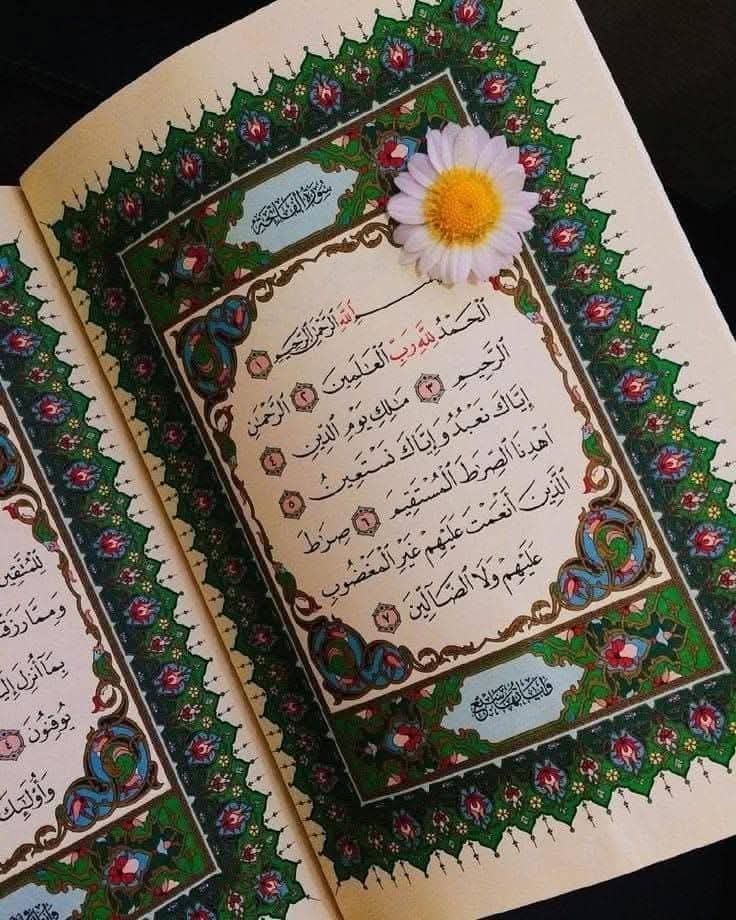 سُورَةُ الْفَاتِحَة
ٱللَّهِ ٱلرَّحْمَٰنِ ٱلرَّحِيمِ ١
ٱلْحَمْدُ لِلَّهِ رَبِّ ٱلْعَٰلَمِينَ ٢ ٱلرَّحْمَٰنِ
ٱلرَّحِيمِ ٣ مَٰلِكِ يَوْمِ ٱلدِّينِ ٤
إِيَّاكَ نَعْبُدُ وَإِيَّاكَ نَسْتَعِينُ ٥
ٱهْدِنَا ٱلصِّرَٰطَ ٱلْمُسْتَقِيمَ ٦ صِرَٰطَ
ٱلَّذِينَ أَنْعَمْتَ عَلَيْهِمْ غَيْرِ ٱلْمَغْضُوبِ
عَلَيْهِمْ وَلَا ٱلضَّآلِّينَ ٧
وآياتها سبع
لِّلْمُتَّقِين
وَمِمَّا
بِمَآ أُنزِلَ
يُوقِنُونَ ٤
وَأُوْلَٰٓئِكَ